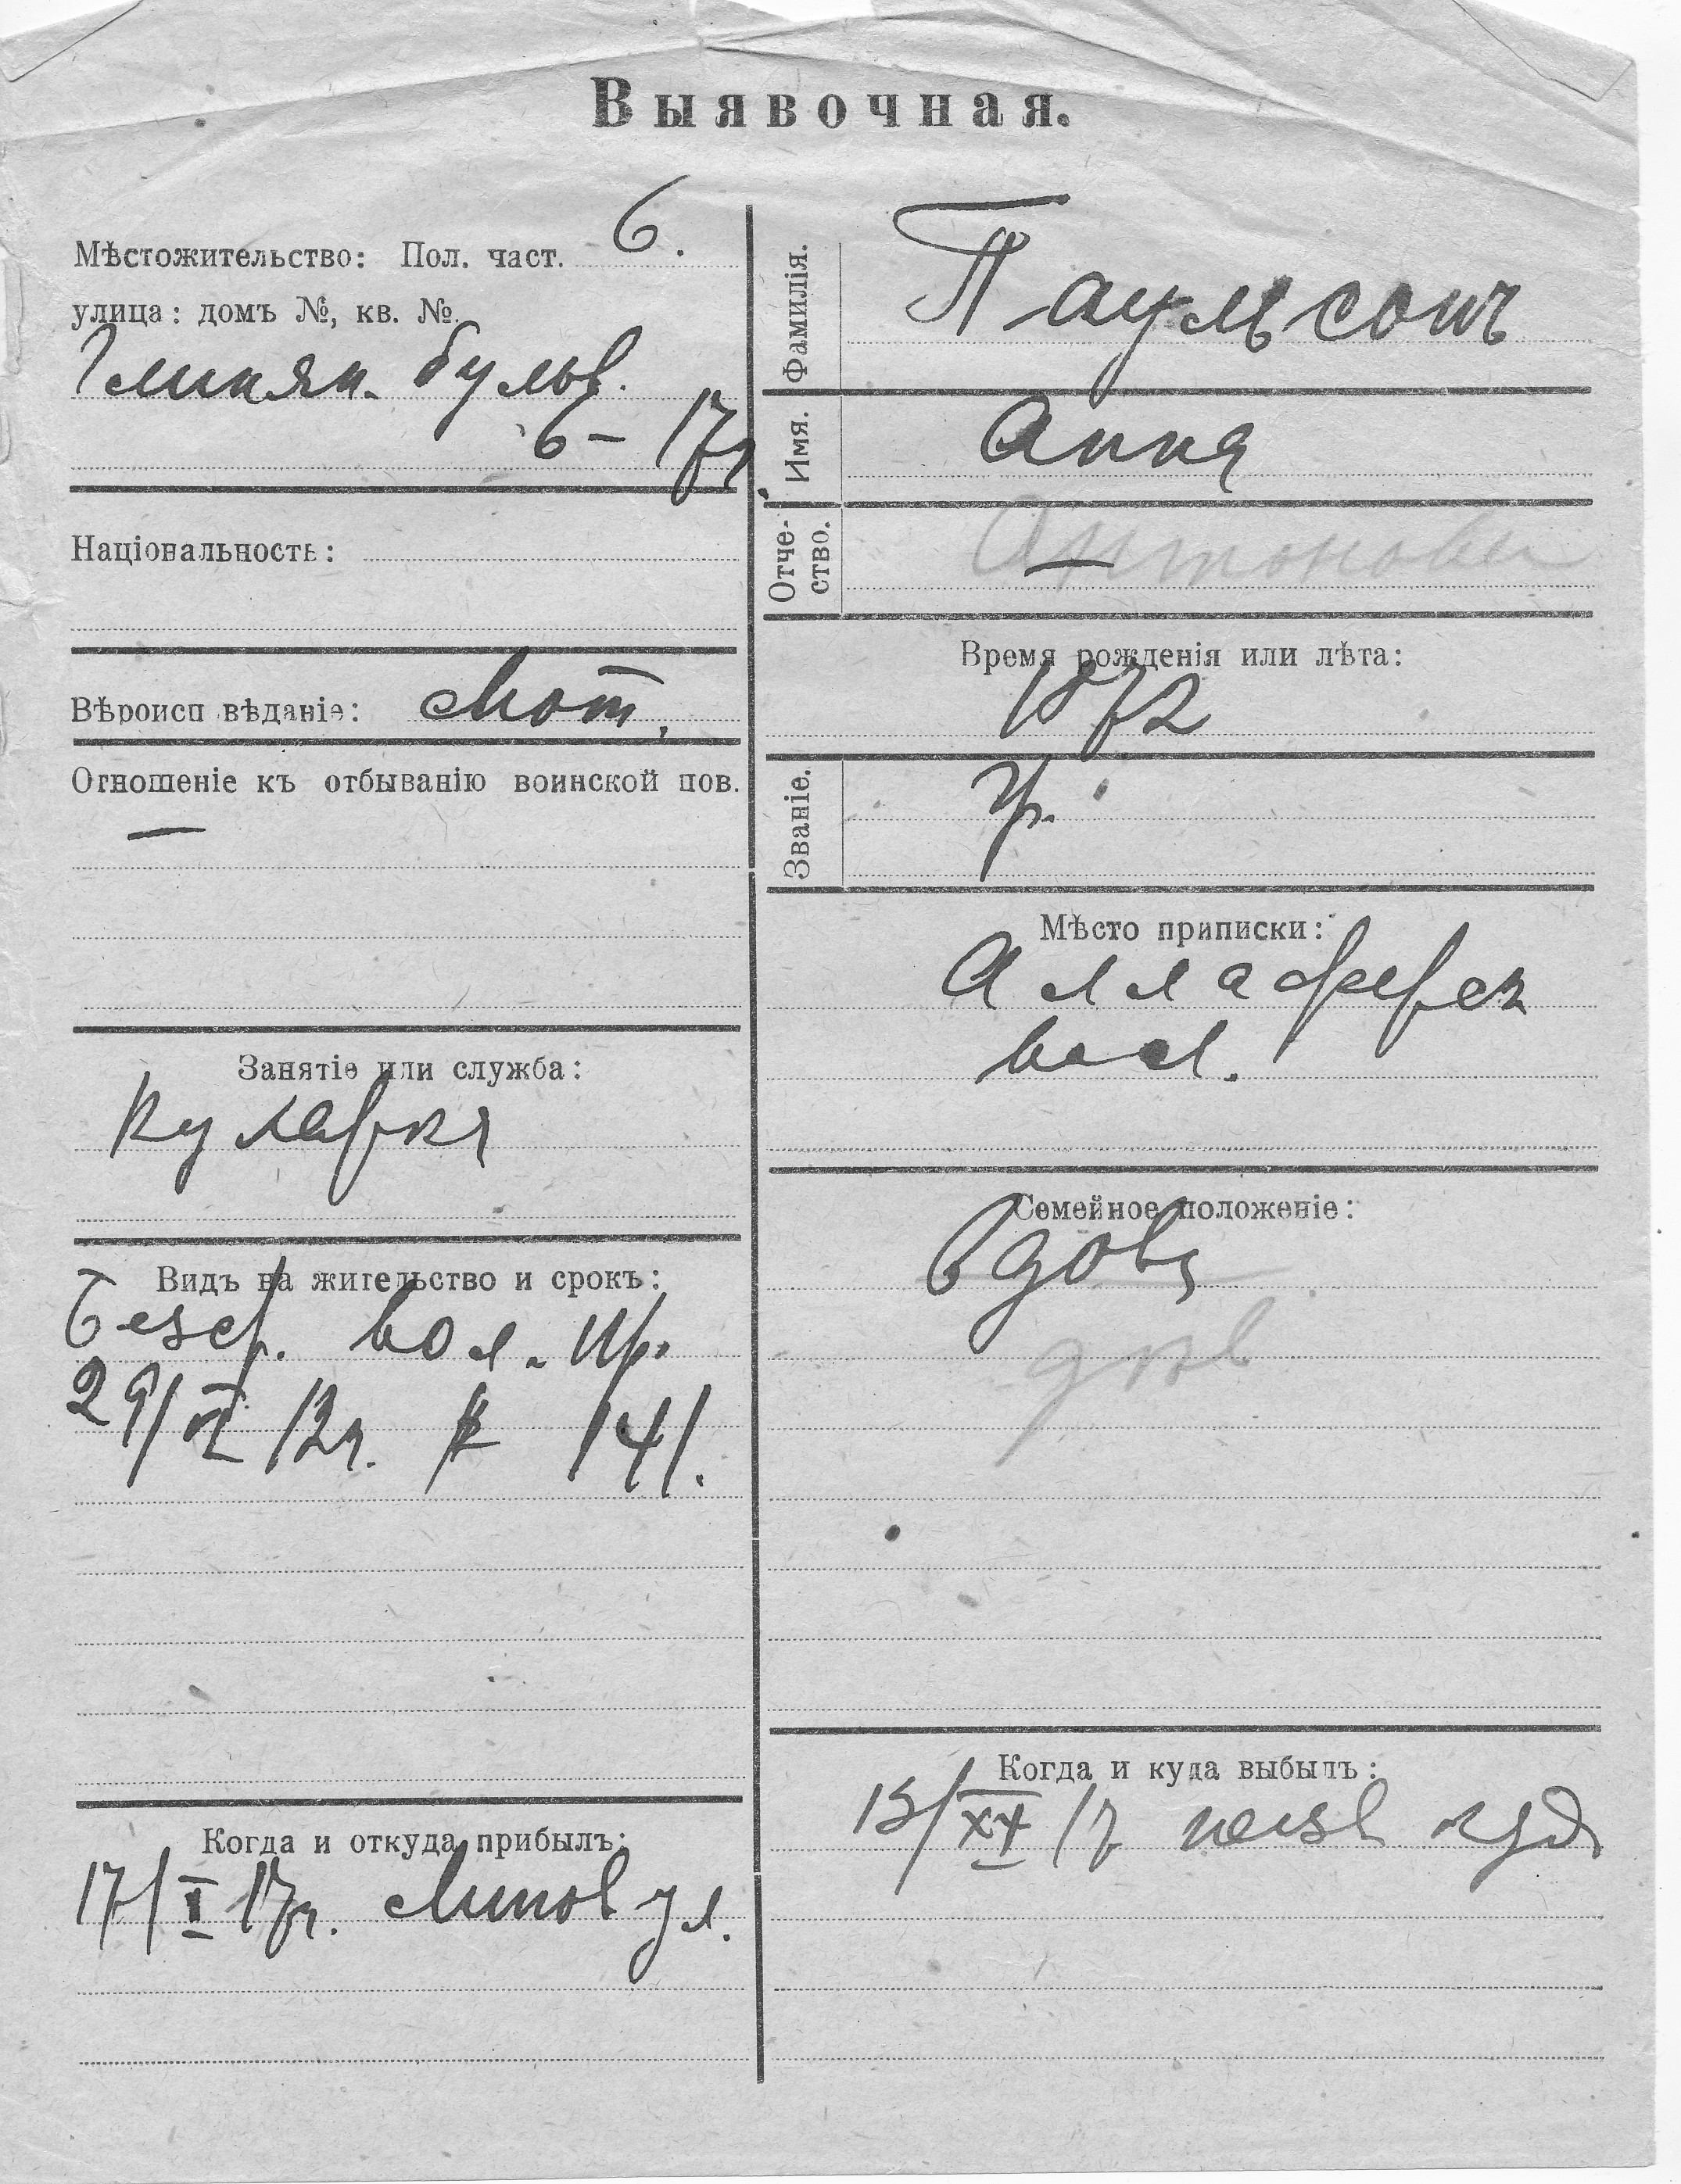 Выявочная.
Мѣстожительство: Пол. част. 6.
улица: домъ №, кв. №.
Глинян. бульв.
6 – 17 г.
Національность:
Вѣроисповѣданіе: Лют.
Отношеніе къ отбыванію воинской пов.
—
Занятіе или служба:
Кухарка
Видъ на жительство и срокъ:
Безср. вол. пр.
29/VI 12 г. № 141.
Когда и откуда прибылъ:
17/I 17 г. Липов ул.
Фамилія. Паульсонъ
Имя. Анна
Отчество. — Антонова
Время рожденія или лѣта:
1872
Званіе. кр.
Мѣсто приписки:
вол.
Семейное положеніе:
Вдова
Когда и куда выбылъ:
15/XII 17 неизв куда